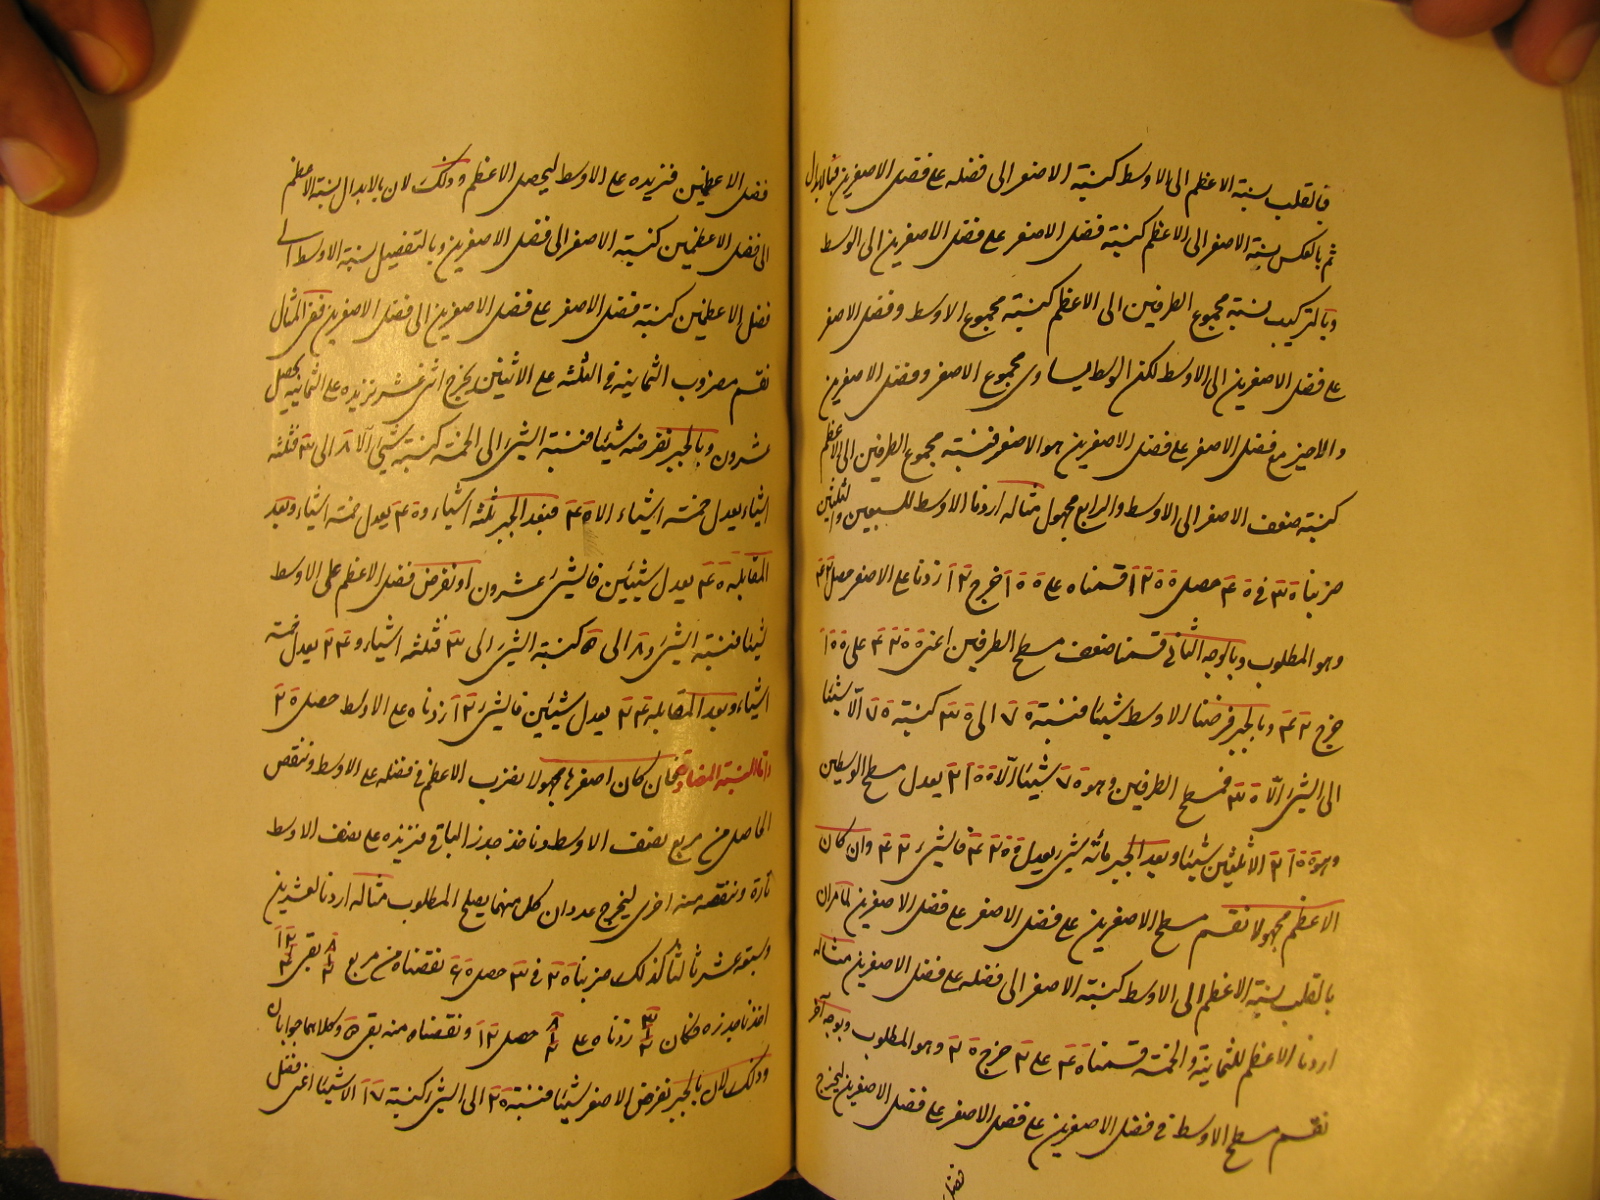 فبالقلب نسبة الاعظم الى الاوسط كنسبة الاصغر الى فضله على فضل الاصغرين فبالابدال
ثم بالعكس نسبة الاصغر الى الاعظم كنسبة فضل الاصغر على فضل الاصغرين الى الوسط
وبالتركيب نسبة مجموع الطرفين الى الاعظم كنسبة مجموع الاوسط وفضل الاصغر
على فضل الاصغرين الى الاوسط لكن الوسط يساوى مجموع الاصغر وفضل الاصغرين
والاخير مع فضل الاصغر على فضل الاصغرين هو الاصغر فنسبة مجموع الطرفين الى الاعظم
كنسبة ضعف الاصغر الى الاوسط والرابع مجهول مثاله اردنا الاوسط للسبعين والثلثين
ضربنا ٣٥ في ٤٥ حصل ١٢٥٥ قسمناه على ١٥٥ خرج ١٢ زدنا على الاصغر حصل ٤٢
وهو المطلوب وبالوجه الثانى قسمنا ضعف مسطح الطرفين اعنى ٤٢٥٥ على ١٥٥
خرج ٤٢ وبالجبر فرضنا الاوسط شيئا فنسبة ٧٥ الى ٣٥ كنسبة ٧٥ الا شيئا
الى الشئ الا ٣٥ فمسطح الطرفين وهو ٧٥ شيئا الا ٢١٥٥ يعدل مسطح الوسطين
وهو ٢١٥٥ الا ثلثين شيئا وبعد الجبر مائة شئ يعدل ٤٢٥٥ فالشئ ٤٢ وان كان
الاعظم مجهولا نقسم مسطح الاصغرين على فضل الاصغر على فضل الاصغرين لما مر ان
بالقلب نسبة الاعظم الى الاوسط كنسبة الاصغر الى فضله على فضل الاصغرين مثاله
اردنا الاعظم للثمانية والخمسة قسمناه ٤٥ على ٢ خرج ٢٥ وهو المطلوب وبوجه آخر
نقسم مسطح الاوسط في فضل الاصغرين على فضل الاصغر على فضل الاصغرين ليخرج
فضل
فضل الاعظمين فنزيده على الاوسط ليحصل الاعظم وذلك لان بالابدال نسبة الاعظم
الى فضل الاعظمين كنسبة الاصغر الى فضل الاصغرين وبالتفصيل نسبة الاوسط الى
فضل الاعظمين كنسبة فضل الاصغر على فضل الاصغرين الى فضل الاصغرين ففى المثال
نقسم مضروب الثمانية في الثلثة على الاثنين يخرج اثنى عشر نزيده على الثمانية يحصل
عشرون وبالجبر نفرضه شيئا فنسبة الشئ الى الخمسة كنسبة شئ الا ٨ الى ٣ فثلثة
اشياء يعدل خمسة اشياء الا ٤٥ فبعد الجبر ثلثة اشياء و ٤٥ يعدل خمسة اشياء وبعد
المقابلة ٤٥ يعدل شيئين فالشئ عشرون او نفرض فضل الاعظم على الاوسط
شيئا فنسبة الشئ و ٨ الى ٥ كنسبة الشئ الى ٣ فثلثة اشياء و ٢٤ يعدل خمسة
اشياء وبعد المقابلة ٢٤ يعدل شيئين فالشئ ١٢ زدناه على الاوسط حصل ٢٥
واما النسبة فان كان اصغرها مجهولا نضرب الاعظم في فضله على الاوسط وننقص
الحاصل من مربع نصف الاوسط وناخذ جذر الباقى فنزيده على نصف الاوسط
تارة وننقصه منه اخرى ليخرج عددان كل منهما يصلح المطلوب مثاله اردنا لعشرين
وسبعة عشر ثالثا كذلك ضربنا ٢٥ في ٣ حصل ٦٥ نقصناه من مربع بقى
اخذنا جذره فكان زدناه على حصل ١٢ ونقصناه منه بقى ٥ وكلاهما جوابان
وذلك لان بالجبر نفرض الاصغر شيئا فنسبة ٢٥ الى الشئ كنسبة ١٧ الا شيئا اعنى فضل